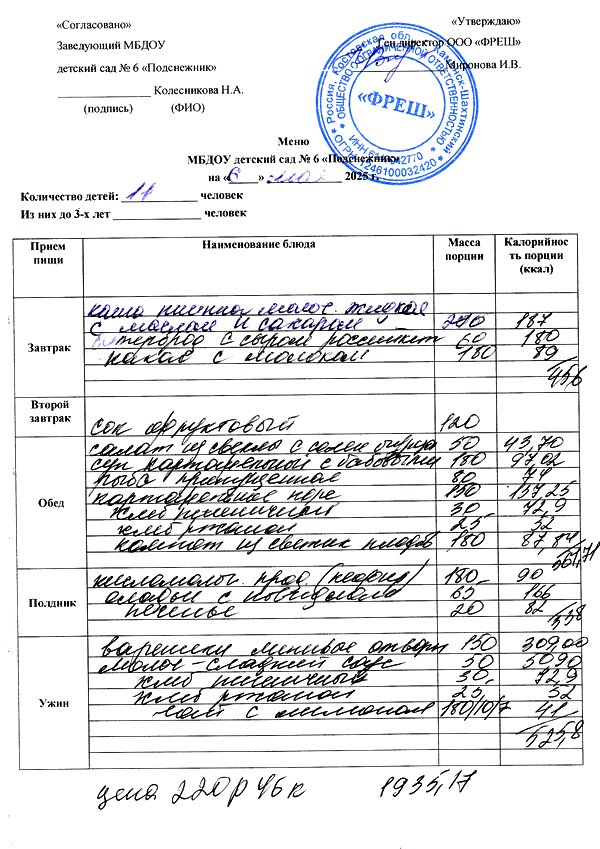 «Согласовано» «Утверждаю»
Заведующий МБДОУ Ген.директор ООО «ФРЕШ»
детский сад № 6 «Подснежник» Миронова И.В.
________________ Колесникова Н.А.
(подпись) (ФИО)
Россия, Ростовская обл. г. Каменск-Шахтинский
ОБЩЕСТВО С ОГРАНИЧЕННОЙ ОТВЕТСТВЕННОСТЬЮ
«ФРЕШ»
ИНН
ОГРН 1246100032420
Меню
МБДОУ детский сад № 6 «Подснежник»
на « 6 » мая 2025 г.
Количество детей: 11 человек
Из них до 3-х лет _______________ человек
Прием пищи Наименование блюда Масса порции Калорийность порции (ккал)
Завтрак
каша молоч. жидкая
с маслом и сахаром 200 187
бутерброд с сыром 60 180
какао с молоком 180 89
456
Второй завтрак
сок фруктовый 120
Обед
салат из свеклы с солен. огурцом 50 43,70
суп картофельный с бобовыми 180 97,02
рыба припущенная 80 74
картофельное пюре 150 137,25
хлеб пшеничный 30 72,9
хлеб ржаной 25 52
компот из свежих плодов 180 87,84
561,71
Полдник
кисломолоч. прод. (кефир) 180 90
оладьи с повидлом 65 166
печенье 20 82
338
Ужин
вареники ленивые отварн 150 309,00
молоч-сладкий соус 30 50,90
хлеб пшеничный 30 72,9
хлеб ржаной 25 52
чай с лимоном 180/10/7 41
525,8
цена 220р 46к 1935,17